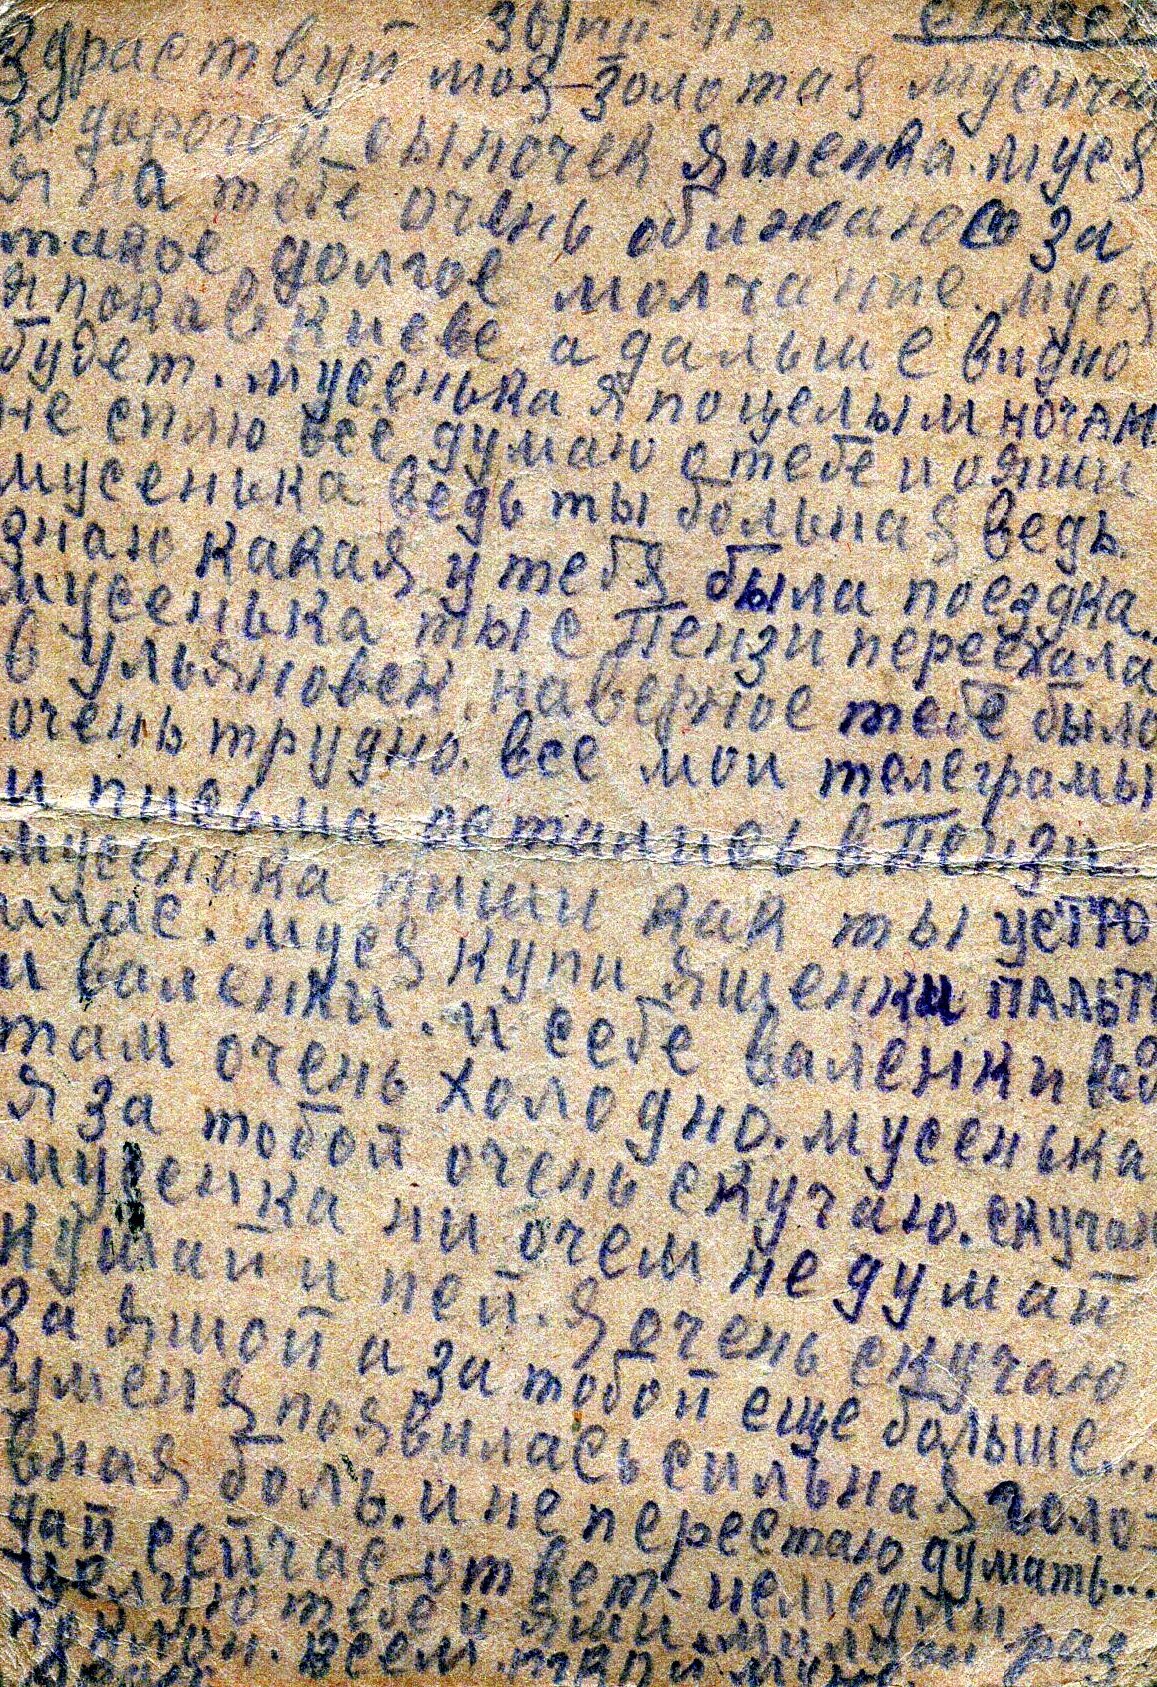 30/VIII-41г
Здраствуй моя золотая мусичка
и дорогой сыночек яшенка. муся
я на тебе очень обижаюсь за
такое долгое молчание. муся
я пока в Киеве а дальше видно
будет. мусенька я по целым ночам
не сплю все думаю о тебе и о яши
мусенька ведь ты больная ведь
знаю какая у тебя была поездка.
мусенька ты с Пензи переехала
в Ульяновск. наверное тебе было
очень трудно. все мои телеграмы
и письма остались в Пензи
мусенька пиши как ты устро
илас. муся купи яшенки ПАЛЬТ
и валенки. и себе валенки вед
там очень холодно. мусенька
я за тобой очень скучаю. скучаю
мусенка ни очем не думай
кушай и пей. я очень скучаю
за яшой а за тобой еще больше...
уменя появилась сильная голо-
вная боль. и не перестаю думать...
дай сейчас ответ.
целую тебе и яши
всем